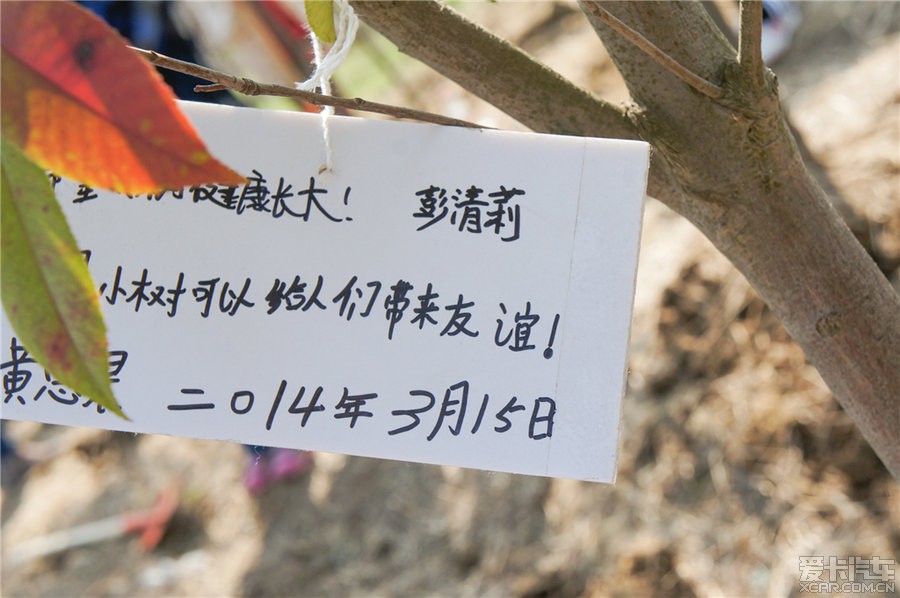 健康长大! 彭清莉
小树可以给人们带来友谊!
黄思 二014年3月15日
爱卡汽车
XCAR.COM.CN